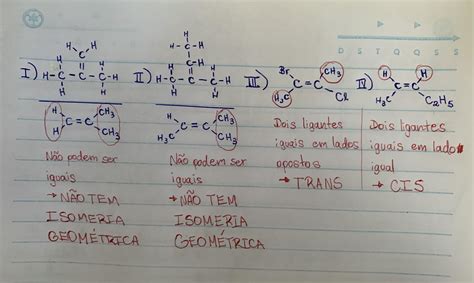 D S T Q Q S S
I) II) III) IV)
H H
C
H
H-C-C=C-C-H
H H
H-C-H
C-H
H-C-C=C-C-H
Br CH3
C=C
H3C Cl
H H
C=C
H3C C2H5
H CH3
C=C
H CH3
H CH3
C=C
H3C CH3
Não podem ser
iguais
→ NÃO TEM
ISOMERIA
GEOMÉTRICA
Não podem ser
iguais
→ NÃO TEM
ISOMERIA
GEOMÉTRICA
Dois ligantes
iguais em lados
opostos
→ TRANS
Dois ligantes
iguais em lado
igual
→ CIS